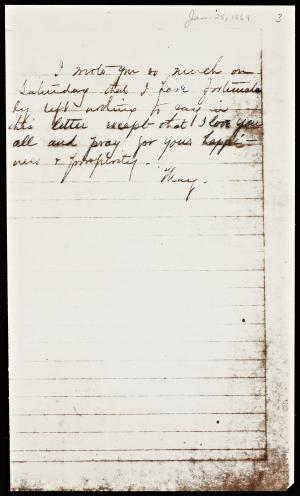 Jan. 25, 1869
3
I wrote you so much on
Saturday that I have fortunate
ly left nothing to say in
this letter except that I love you
all and pray for your happi-
ness & prosperity.
May.